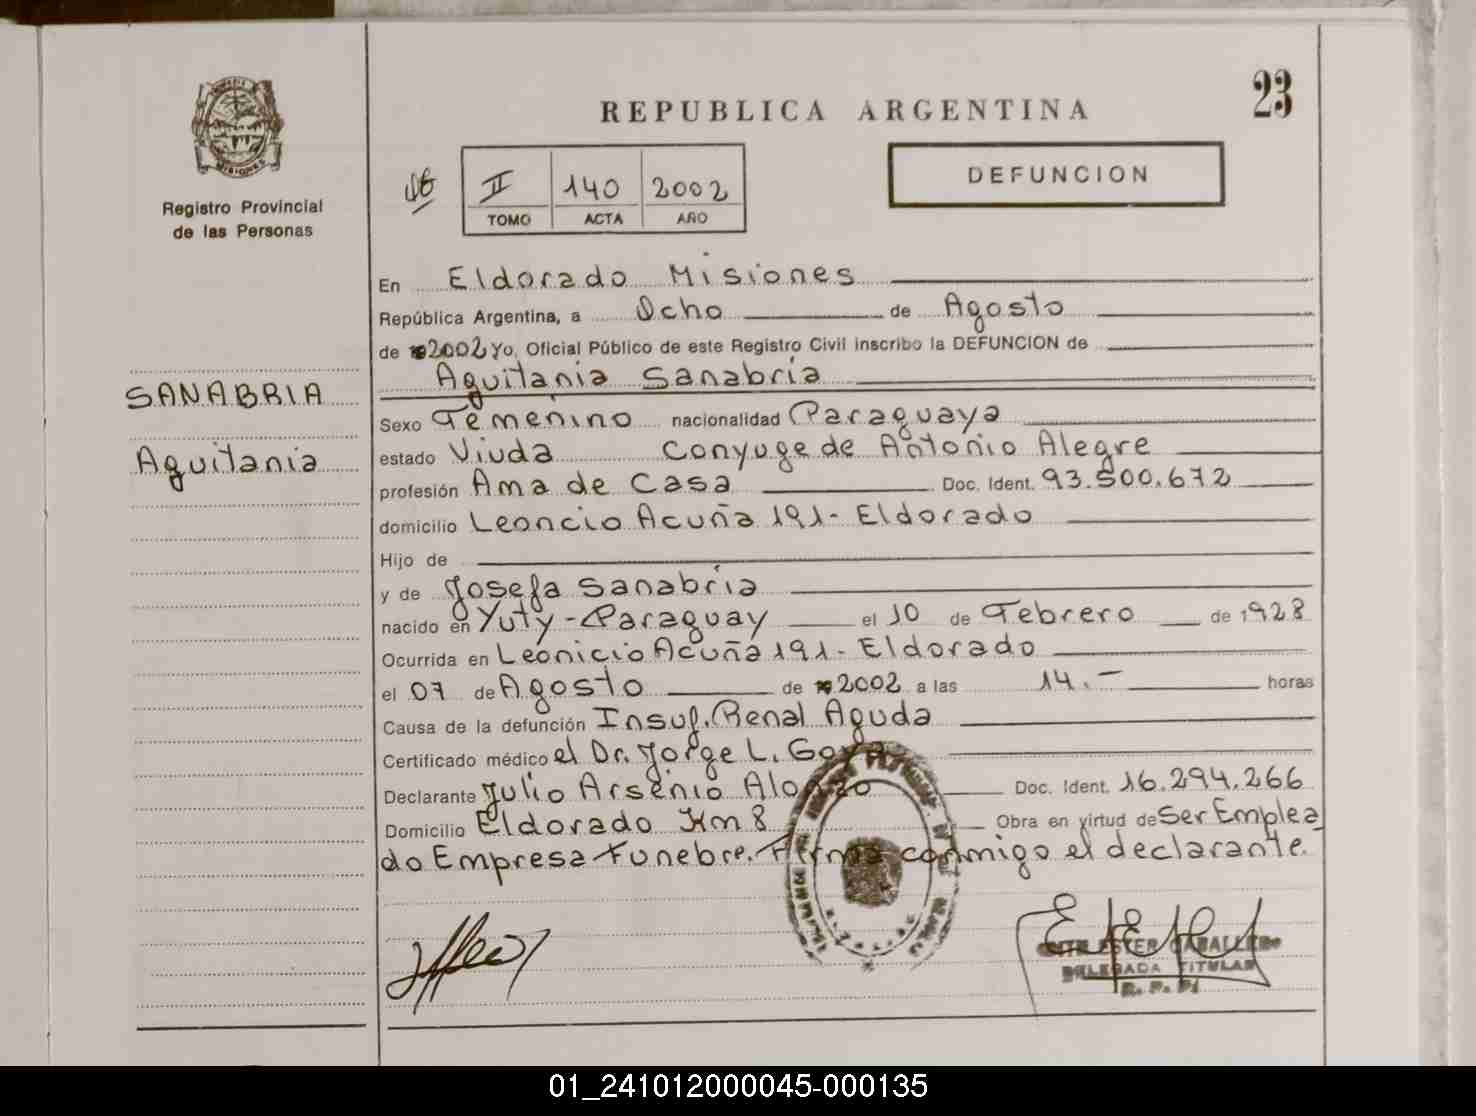 23
REPUBLICA ARGENTINA
DEFUNCION
II 140 2002
TOMO ACTA AÑO
Registro Provincial
de las Personas
MISIONES
SANABRIA
Aquitania
En Eldorado Misiones
República Argentina, a Ocho de Agosto
de 2002 Yo, Oficial Público de este Registro Civil inscribo la DEFUNCION de
Aquitania Sanabria
Sexo Femenino nacionalidad Paraguaya
estado Viuda Conyuge de Antonio Alegre
profesión Ama de Casa Doc. Ident. 93.500.672
domicilio Leoncio Acuña 191- Eldorado
Hijo de
y de Josefa Sanabria
nacido en Yuty - Paraguay el 10 de Febrero de 1928
Ocurrida en Leonicio Acuña 191- Eldorado
el 07 de Agosto de 2002 a las 14.- horas
Causa de la defunción Insuf. Renal Aguda
Certificado médico el Dr. Jorge L. Goya
Declarante Julio Arsenio Alonzo Doc. Ident. 16.294.266
Domicilio Eldorado Km 8 Obra en virtud de Ser Emplea
do Empresa Funebre. Firma conmigo el declarante.
ESTER CABALLERO
DELEGADA TITULAR
R. P. P.
01_241012000045-000135